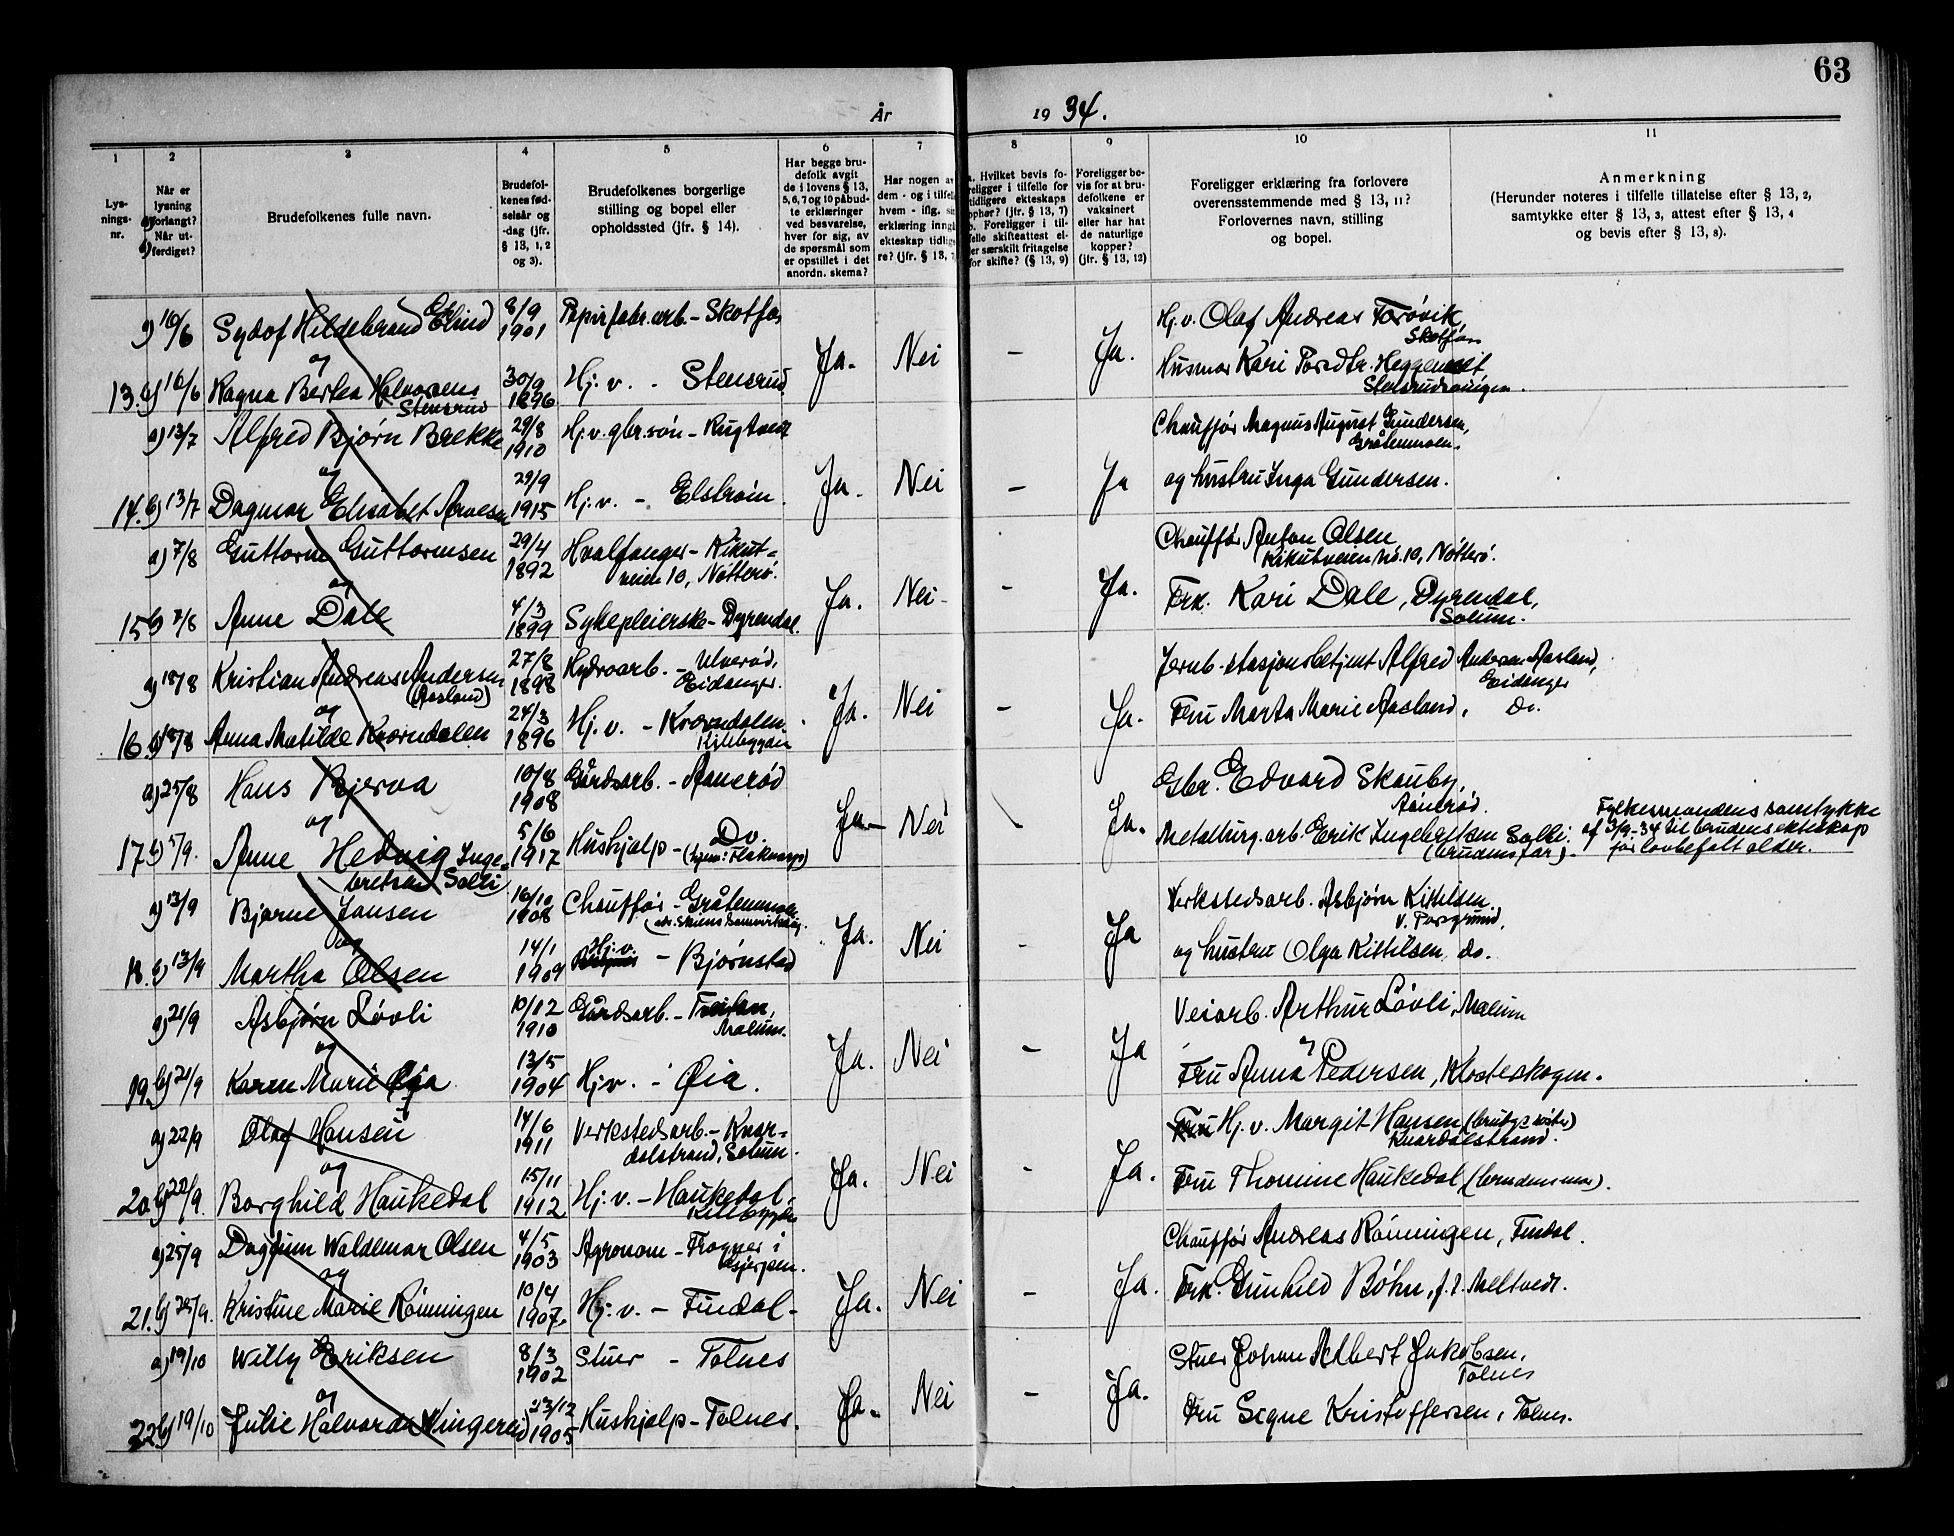 63
År 1934.
1 2 3 4 5 6 7 8 9 10 11
Lys-
nings-
nr.
Når er
lysning
a) forlangt?
Når ut-
b) ferdiget?
Brudefolkenes fulle navn.
Brudefol-
kenes fød-
selsår og
-dag (jfr.
§ 13, 1, 2
og 3).
Brudefolkenes borgerlige
stilling og bopel eller
opholdssted (jfr. § 14).
Har begge bru-
defolk avgit
de i lovens § 13,
5, 6, 7 og 10 påbud-
te erklæringer
ved besvarelse,
hver for sig, av
de spørsmål som
er opstillet i det
anordn. skema?
Har nogen av
dem - og i tilfelle
hvem - iflg. sin
erklæring inngå
ekteskap tidlige-
re? (jfr. § 13,
a. Hvilket bevis fo-
religger i tilfelle for
tidligere ekteskaps
ophør? (jfr. § 13, 7)
b. Foreligger i til-
felle skifteattest el-
ler særskilt fritagelse
for skifte? (§ 13, 9)
Foreligger be-
vis for at bru-
defolkene er
vaksinert
eller har hat
de naturlige
kopper?
(jfr. § 13, 12)
Foreligger erklæring fra forlovere
overensstemmende med § 13, 11?
Forlovernes navn, stilling
og bopel.
Anmerkning
(Herunder noteres i tilfelle tillatelse efter § 13, 2,
samtykke efter § 13, 3, attest efter § 13, 4
og bevis efter § 13, 8).
a) 16/6 Sydof Hildebrand 8/9 1901 Papirfabr.arb. - Skotfos
og
Ja. Nei - Ja.
Hj.v. Olaf Andreas Torøvik,
Skotfoss
13. b) 16/6 Ragna Bertea Halvorsens
Stensrud
30/9 1896 Hj.v. - Stensrud
Husmor Kari
a) 13/7 Alfred Bjørn Brekke 29/8 1910 Hj.v. gbr.søn - Rugtvedt
og
Ja. Nei - Ja
Chauffør Magnus August Gundersen,
Gråtenmoen.
14. b) 13/7 Dagmar Elisabet Arvesen 29/9 1915 Hj.v. - Elstrøm.
og hustru Inga Gundersen.
a) 7/8 Guttorm Guttormsen 29/4 1892 Hvalfanger - Kikut=
veien 10, Nøtterø.
og
Ja. Nei - Ja.
Chauffør Anton Olsen
Kikutveien no. 10, Nøtterø.
15 b) 7/8 Anne Dale 4/3 1899 Sykepleierske - Dyrendal.
Frk. Kari Dale, Dyrendal,
Solum.
a) 18/8 Kristian Andreas Andersen
(Aasland)
27/8 1898 Hydroarb. - Ulverød,
Eidanger.
og
Ja. Nei - Ja.
Jernb. stasjonsbetjent Alfred Andersen Aasland,
Eidanger
16. b) 18/8 Anna Matilde Kvorndalen 24/3 1896 Hj.v. - Kvorndalen
Kilebygden
Fru Marta Marie Aasland, Do.
a) 25/8 Hans Bjerva 10/8 1908 Gårdsarb. - Aanerød
og
Ja - Nei - Ja.
Gbr. Edvard Skauby,
Aanerød.
17. b) 5/9. Anne Hedvig Inge-
bretsen Solli
5/6 1917 Hushjelp - Do.
Metallurg.arb. Erik Ingebretsen Solli
(brudens far).
Fylkesmandens samtykke
af 3/9-34 til brudens ekteskap
før lovbefalt alder.
a) 13/9 Bjarne Jansen 16/10 1908 Chauffør - Gråtenmoen
og
Ja. Nei - Ja
Verkstedsarb. Asbjørn Kittilsen
V. Porsgrund,
18. b) 13/9 Martha Olsen 14/1 1909 Hj.v. - Bjørnstad
og hustru Olga Kittilsen, do.
a) 21/9 Asbjørn Løvli 10/12 1910 Gårdsarb. -
Mælum.
og
Ja. Nei - Ja
Veiarb. Arthur Løvli, Mælum
og
19. b) 21/9 Karen Marie Øia 13/5 1904 Hj.v. - Øia.
Fru Anna Pedersen, Klosterskogen.
a) 22/9 Olaf Hansen 14/6 1911 Verkstedsarb. - Knar=
dalstrand, Solum.
og
Ja. Nei - Ja.
Fru Hj.v. Margit Hansen (brudg.s søster)
Knardalstrand.
20. b) 22/9. Borghild Haukedal 15/11 1912 Hj.v. - Haukedal,
Kilebygden
Fru Thomine Haukedal (brudens mor).
a) 25/9 Dagfinn Waldemar Olsen 4/5 1903 Agronom - Frogner i
Gjerpen.
og
Ja. Nei - Ja.
Chauffør Andreas Rønningen, Findal.
21. b) 25/9. Kristine Marie Rønningen 10/4 1907. Hj.v. - Findal -
Frk. Gunhild Bøhn, f.t. Meltvedt.
a) 19/10 Willy Eriksen 8/3 1902 Stuer - Tolnes
og
Ja. Nei - Ja.
Stuer Johan Albert Jakobsen,
Tolnes
22. b) 19/10 Julie 23/12 1905 Hushjelp - Tolnes.
Fru Signe Kristoffersen, Tolnes.